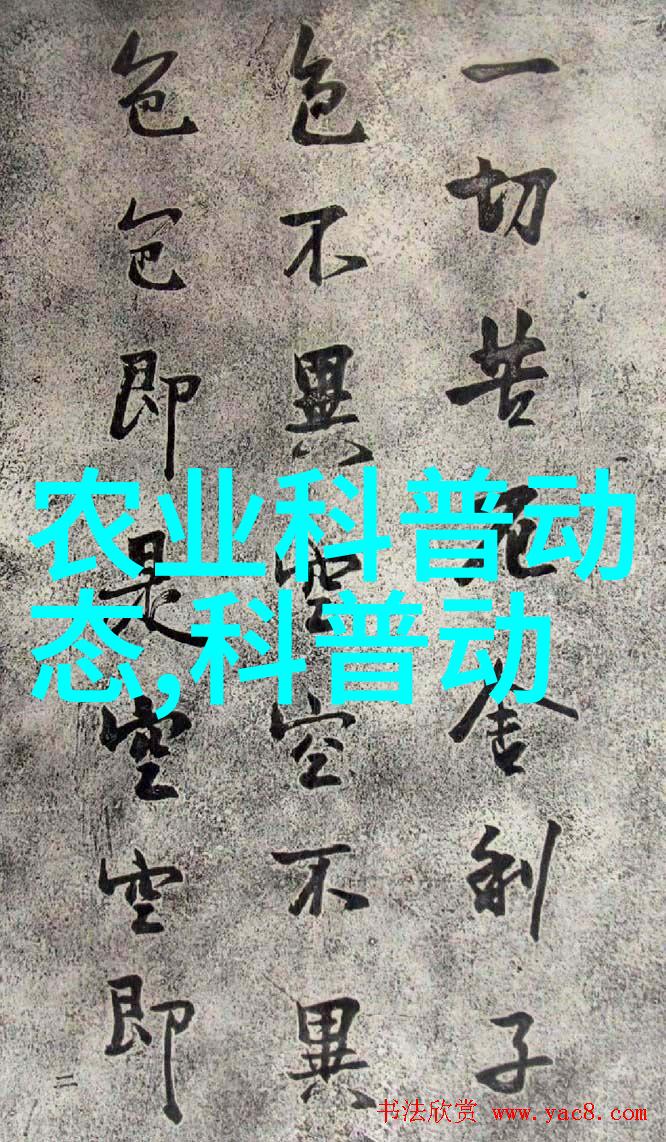 一切苦厄舍利子
色不異空空不異
色色即是空空即
二
农业科普动
态,科普动
书法欣赏 www.yac8.com